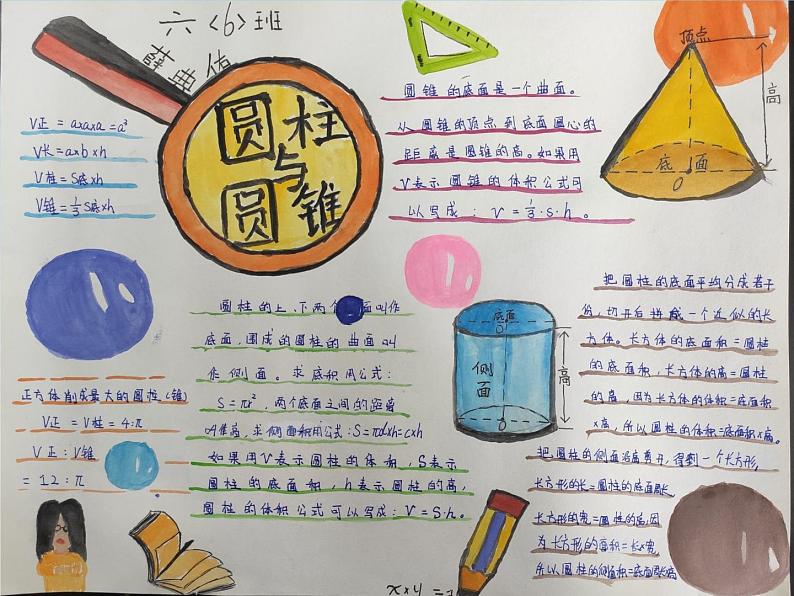 六<6>班
薛典值
圆柱
与
圆锥
V正 = a×a×a = a³
V长 = a×b×h
V柱 = S底×h
V锥 = 1/3 S底×h
圆锥的底面是一个曲面。
从圆锥的顶点到底面圆心的
距离是圆锥的高。如果用
V表示圆锥的体积公式可
以写成：V = 1/3·s·h。
顶点
高
底面
O
圆柱的上、下两个面叫作
底面，围成的圆柱的曲面叫
作侧面。求底积用公式：
S=πr²，两个底面之间的距离
叫作高，求侧面积用公式：S=πd×h=c×h
如果用V表示圆柱的体积，S表示
圆柱的底面积，h表示圆柱的高，
圆柱的体积公式可以写成：V=S·h。
底面
O
侧面
高
O
把圆柱的底面平均分成若干
份，切开后拼成一个近似的长
方体。长方体的底面积=圆柱
的底面积，长方体的高=圆柱
的高，因为长方体的体积=底面积
×高，所以圆柱的体积=底面积×高。
把圆柱的侧面沿高展开，得到一个长方形，
长方形的长=圆柱的底面周长
长方形的宽=圆柱的高因
为长方形的面积=长×宽
所以圆柱的侧面积=底面周长×高
正方体削成最大的圆柱（锥）
V正=V柱=4:π
V正:V锥
=12:π
x×y=